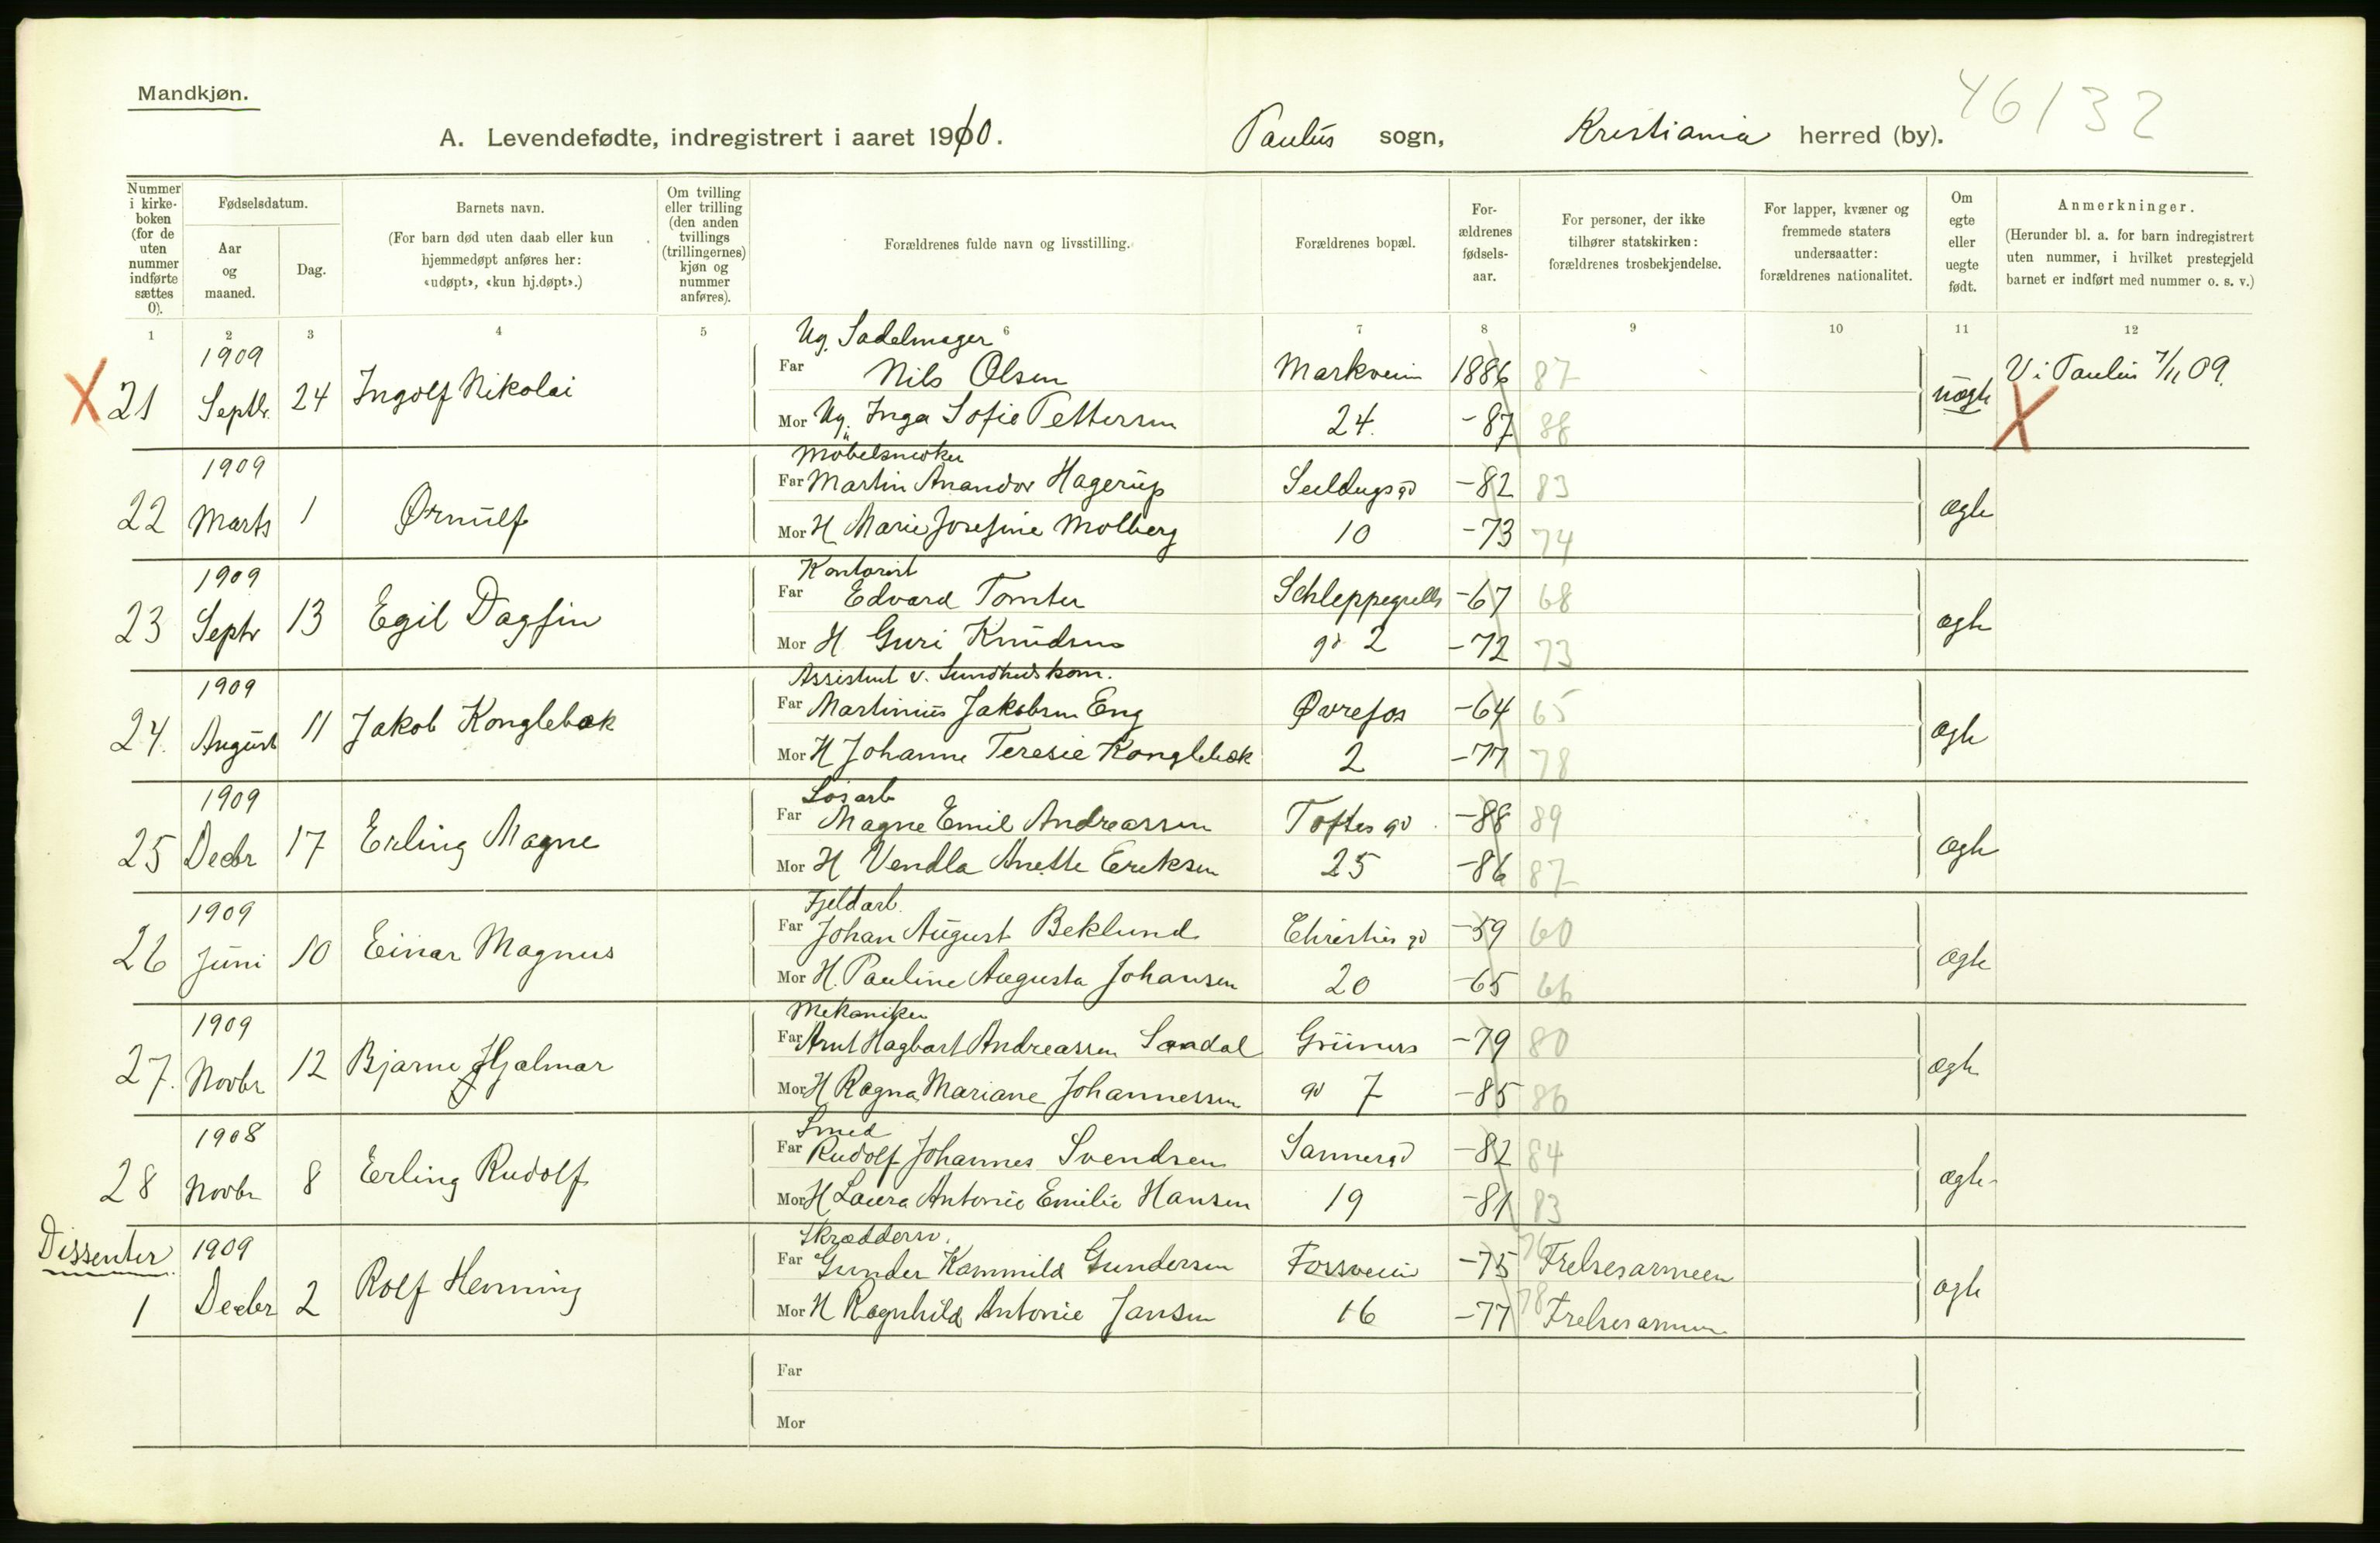 Mandkjøn.
46/32
A. Levendefødte, indregistrert i aaret 1910. Paulus sogn, Kristiania herred (by).
Nummer i kirkeboken (for de uten nummer indførte sættes 0).
Fødselsdatum.
Aar og maaned.
Dag.
Barnets navn.
(For barn død uten daab eller kun hjemmedøpt anføres her: «udøpt», «kun hj.døpt».)
Om tvilling eller trilling (den anden tvillings (trillingernes) kjøn og nummer anføres).
Forældrenes fulde navn og livsstilling.
Forældrenes bopæl.
For-ældrenes fødsels-aar.
For personer, der ikke tilhører statskirken: forældrenes trosbekjendelse.
For lapper, kvæner og fremmede staters undersaatter: forældrenes nationalitet.
Om egte eller uegte født.
Anmerkninger.
(Herunder bl. a. for barn indregistrert uten nummer, i hvilket prestegjeld barnet er indført med nummer o. s. v.)
1 2 3 4 5 6 7 8 9 10 11 12
1909 Ug. Sadelmager
X 21 Septbr. 24 Ingolf Nikolai Far Nils Olsen Markveien 1886 87 uægte V i Paulus 7/11 09. X
Mor Ug. Inga Sofie Pettersen 24. -87 88
1909 Möbelsnedker
22 Marts 1 Ørnulf Far Martin Anandor Hagerup Seildugsgd -82 83 ægte
Mor H Marie Josefine Molberg 10 -73 74
1909 Kontorist
23 Septr 13 Egil Dagfin Far Edvard Tomter Schleppegrells -67 68 ægte
Mor H Guri Knudsen gd 2 -72 73
1909 Assistent v. Sundhedskom.
24. August 11 Jakob Konglebæk Far Martinius Jakobsen Eng Øvrefos -64 65 ægte
Mor H Johanne Teresie Konglebæk 2 -77 78
1909 Løsarb
25 Decbr 17 Erling Magne Far Magne Emil Andreassen Toftes gd -88 89 ægte
Mor H Vendla Anette Eriksen 25 -86 87
1909 Fjeldarb.
26 Juni 10 Einar Magnus Far Johan August Beklund Christies gd -59 60 ægte
Mor H. Pauline Augusta Johansen 20 -65 66
1909 Mekaniker
27. Novbr 12 Bjarne Hjalmar Far Arnt Hagbart Andreassen Sandal Grüners -79 80 ægte
Mor H Ragna Mariane Johannessen gd 7 -85 86
1908 Smed
28 Novbr 8 Erling Rudolf Far Rudolf Johannes Svendsen Sannergd -82 84 ægte
Mor H Laura Antonie Emilie Hansen 19 -81 83
Dissenter 1909 Skræddersv.
1 Decbr 2 Rolf Henning Far Gunder Kammild Gundersen Fossveien -75 76 Frelsesarmeen ægte
Mor H Ragnhild Antonie Jansen 16 -77 78 Frelsesarmeen
Far
Mor